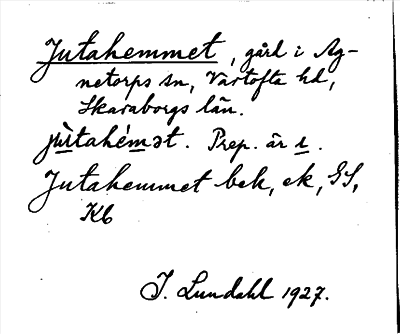 Jutahemmet, gård i Ag-
netorps sn, Vartofta hd,
Skaraborgs län.
jùtahémət. Prep. är i.
Jutahemmet bek, ek, GS,
Kb
I. Lundahl 1927.